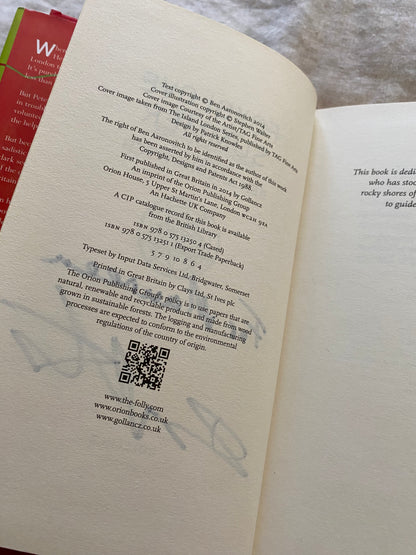 Text copyright © Ben Aaronovitch 2014
Cover illustration copyright © Stephen Walter
Cover image Courtesy of the Artist/TAG Fine Arts
Cover image taken from The Island London Series, published by TAG Fine Arts
Design by Patrick Knowles
All rights reserved
The right of Ben Aaronovitch to be identified as the author of this work
has been asserted by him in accordance with the
Copyright, Designs and Patents Act 1988.
First published in Great Britain in 2014 by Gollancz
An imprint of the Orion Publishing Group
Orion House, 5 Upper St Martin's Lane, London WC2H 9EA
An Hachette UK Company
A CIP catalogue record for this book is available
from the British Library
ISBN 978 0 575 13250 4 (Cased)
ISBN 978 0 575 13251 1 (Export Trade Paperback)
5 7 9 10 8 6 4
Typeset by Input Data Services Ltd, Bridgwater, Somerset
Printed in Great Britain by Clays Ltd, St Ives plc
The Orion Publishing Group's policy is to use papers that are
natural, renewable and recyclable products and made from wood
grown in sustainable forests. The logging and manufacturing
processes are expected to conform to the environmental
regulations of the country of origin.
www.the-folly.com
www.orionbooks.co.uk
www.gollancz.co.uk
This book is dedi
who has stoo
rocky shores of
to guide